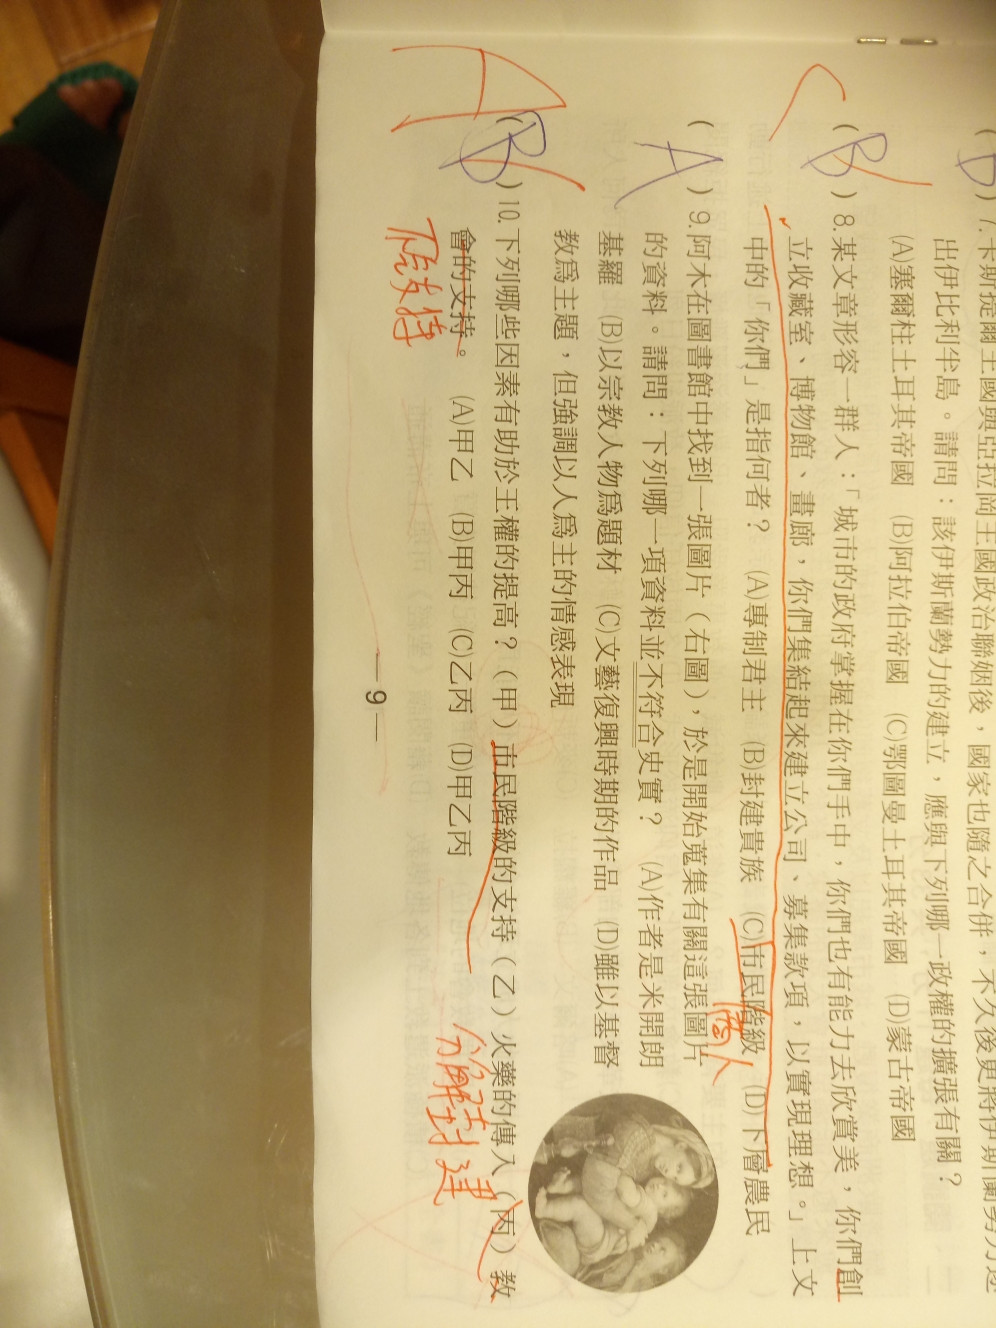 7.卡斯提爾王國與亞拉岡王國政治聯姻後，國家也隨之合併，不久後更將伊斯蘭勢力逐
出伊比利半島。請問：該伊斯蘭勢力的建立，應與下列哪一政權的擴張有關？
(A)塞爾柱土耳其帝國 (B)阿拉伯帝國 (C)鄂圖曼土耳其帝國 (D)蒙古帝國
C
( B ) 8.某文章形容一群人：「城市的政府掌握在你們手中，你們也有能力去欣賞美，你們創
立收藏室、博物館、畫廊，你們集結起來建立公司、募集款項，以實現理想。」上文
中的「你們」是指何者？ (A)專制君主 (B)封建貴族 (C)市民階級 (D)下層農民
商人
( A ) 9.阿木在圖書館中找到一張圖片（右圖），於是開始蒐集有關這張圖片
的資料。請問：下列哪一項資料並不符合史實？ (A)作者是米開朗
基羅 (B)以宗教人物為題材 (C)文藝復興時期的作品 (D)雖以基督
教為主題，但強調以人為主的情感表現
A
( B ) 10.下列哪些因素有助於王權的提高？（甲）市民階級的支持（乙）火藥的傳入（丙）教
會的支持。 (A)甲乙 (B)甲丙 (C)乙丙 (D)甲乙丙
支持
分解封建
— 9 —